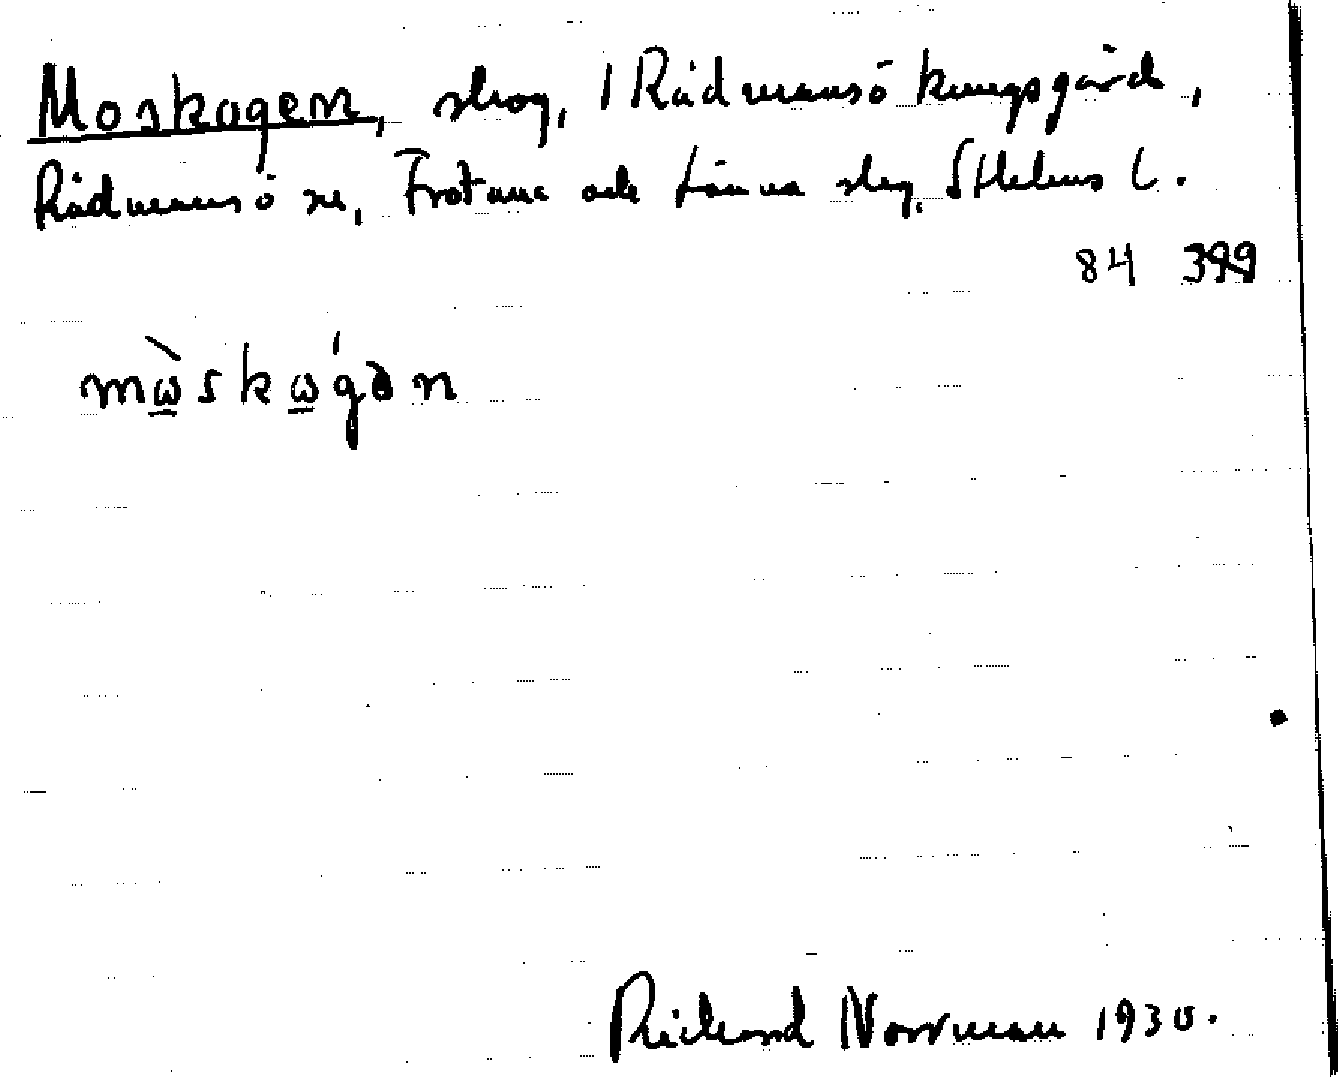 Moskogen, skog, 1 Rådmansö kungsgård,
Rådmansö sn, Frötuna och Länna skg, Sthlms l.
84 399
mὼ̲skώ̲gən
Richard Norrman 1930.